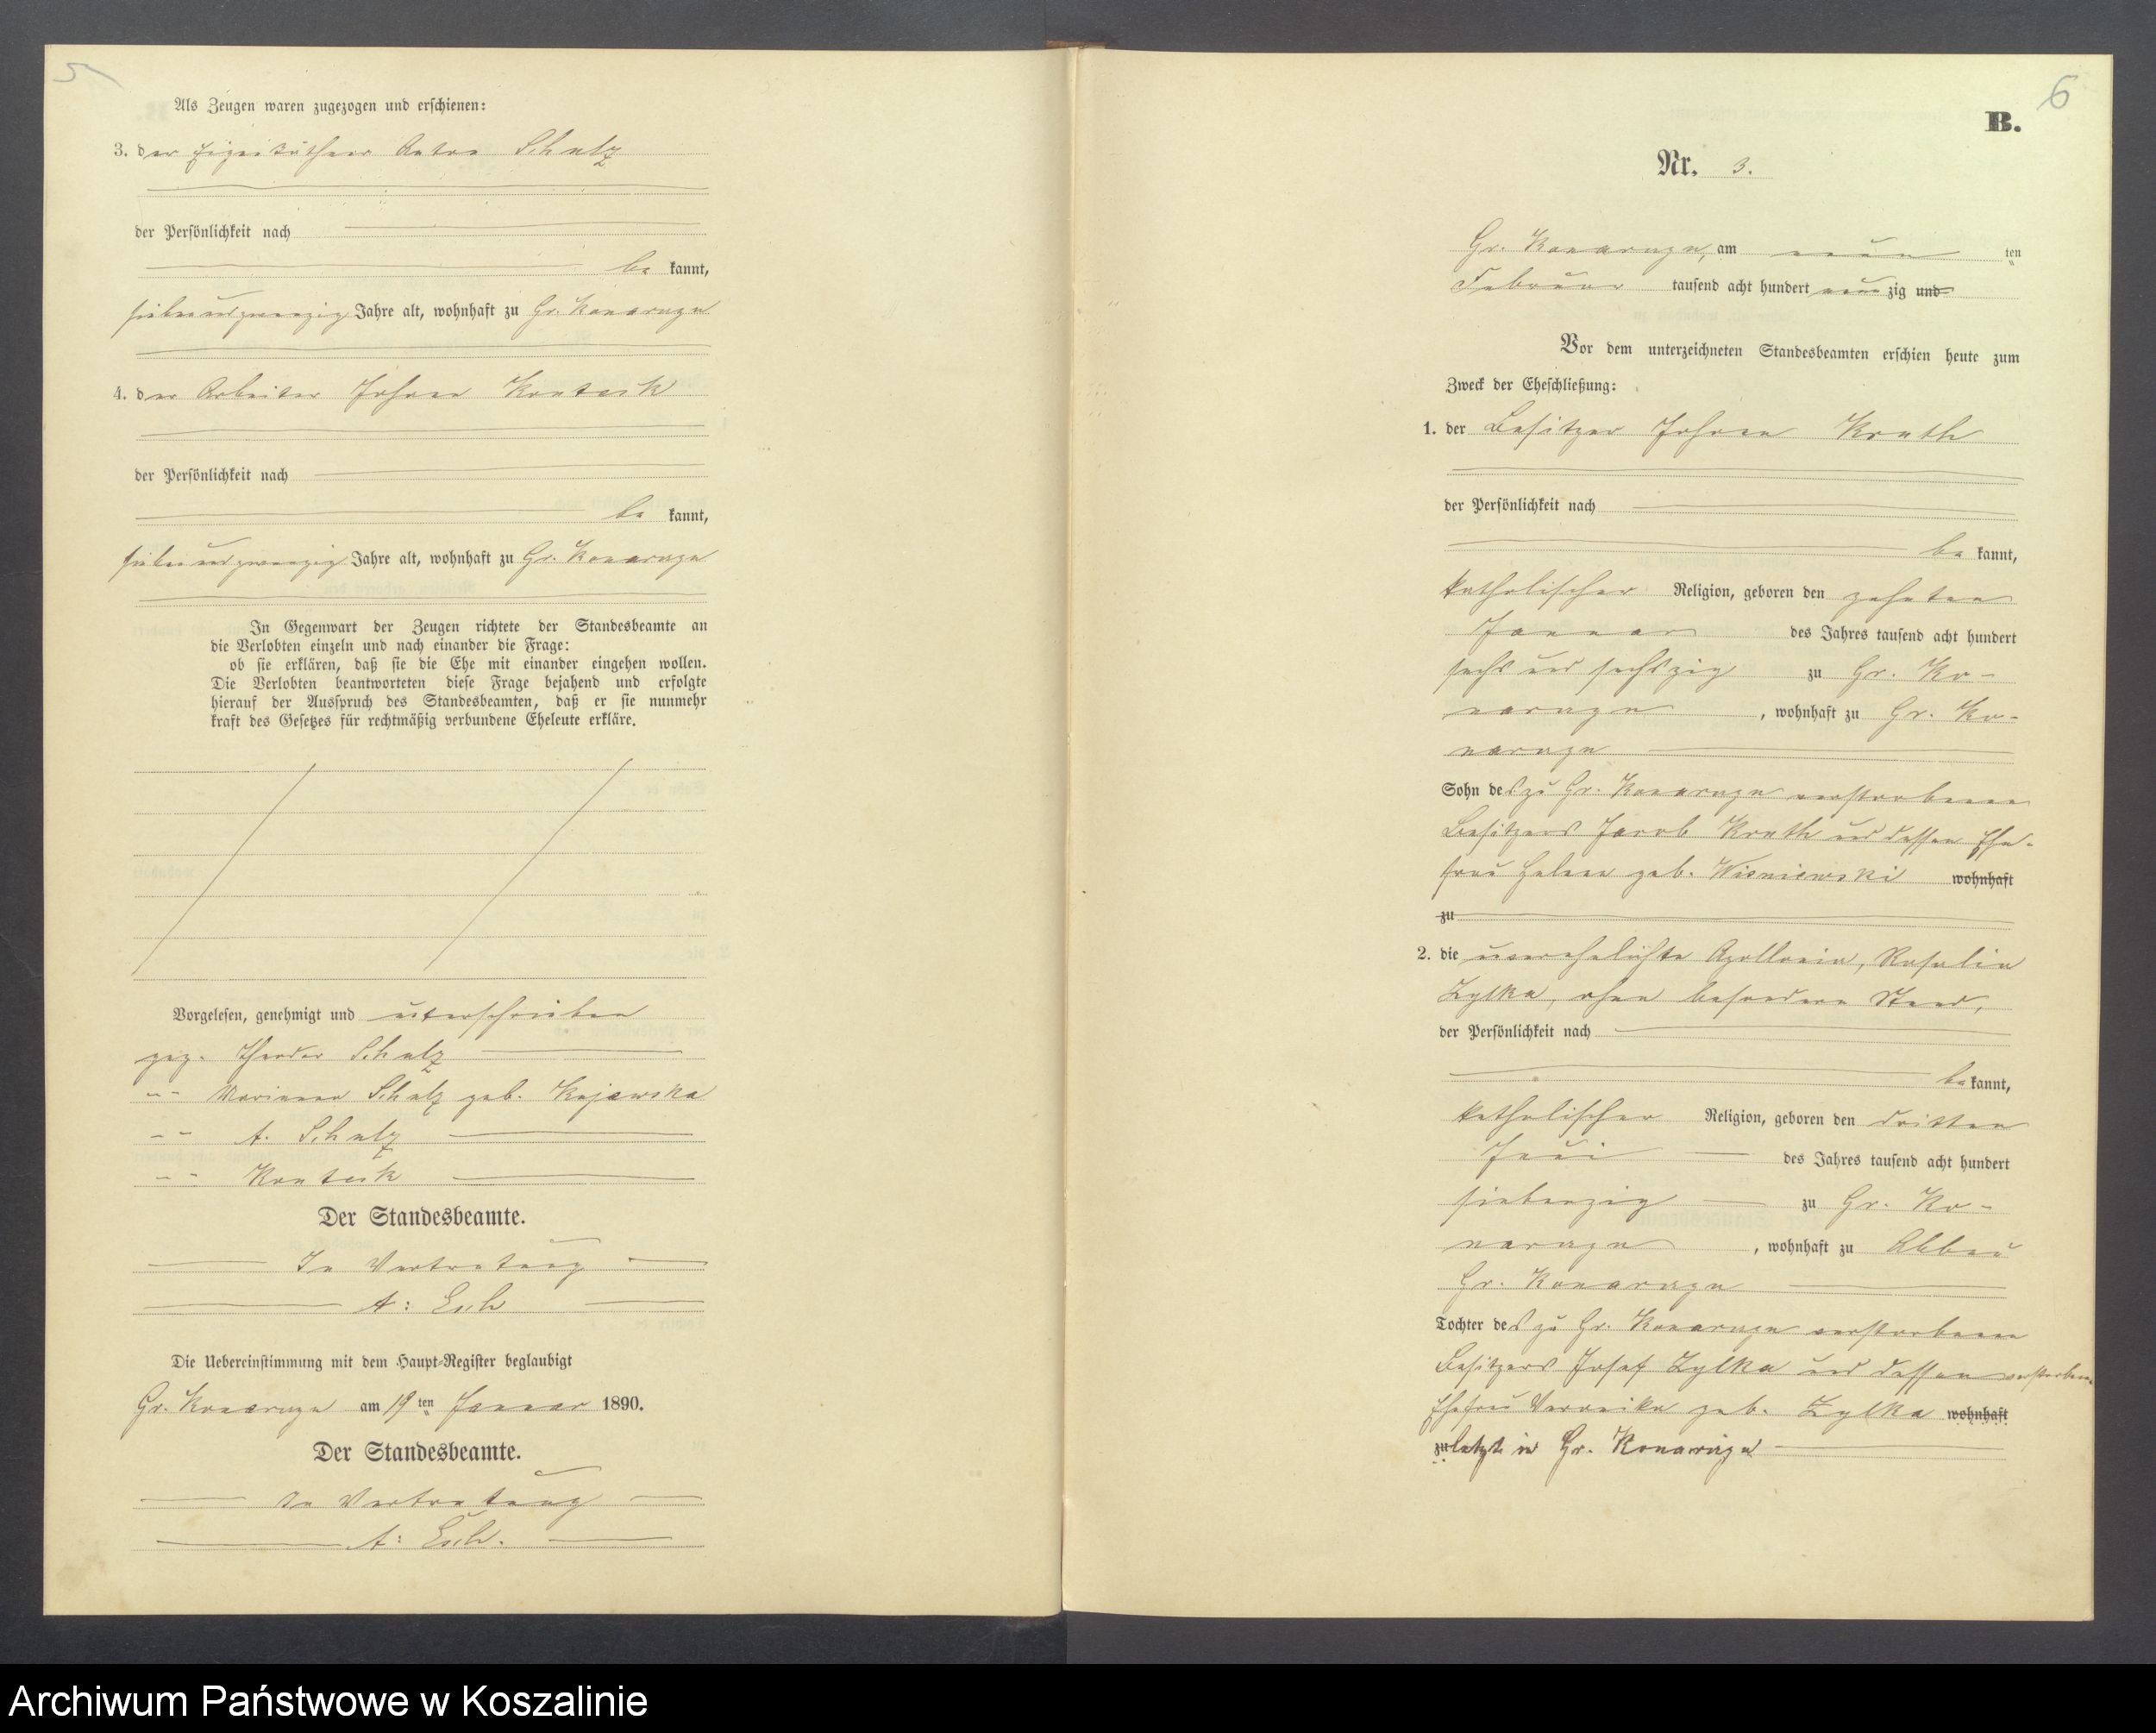 5
Als Zeugen waren zugezogen und erschienen:
3. der Eigenthümer Anton Schulz
der Persönlichkeit nach
be kannt,
siebenundzwanzig Jahre alt, wohnhaft zu Gr. Konarczyn
4. der Arbeiter Johann Kontek
der Persönlichkeit nach
be kannt,
siebenundzwanzig Jahre alt, wohnhaft zu Gr. Konarczyn
In Gegenwart der Zeugen richtete der Standesbeamte an
die Verlobten einzeln und nach einander die Frage:
ob sie erklären, daß sie die Ehe mit einander eingehen wollen.
Die Verlobten beantworteten diese Frage bejahend und erfolgte
hierauf der Ausspruch des Standesbeamten, daß er sie nunmehr
kraft des Gesetzes für rechtmäßig verbundene Eheleute erkläre.
Vorgelesen, genehmigt und unterschrieben
gez. Theodor Schulz
" Marianna Schulz geb. Kujawska
" A. Schulz
"
Der Standesbeamte.
In Vertretung
A: Esch
Die Uebereinstimmung mit dem Haupt-Register beglaubigt
Gr. Konarczyn am 19 ten Januar 1890.
Der Standesbeamte.
In Vertretung
A: Esch.
6
B.
Nr. 3.
Gr. Konarczyn, am neun ten
Februar tausend acht hundert neun zig und
Vor dem unterzeichneten Standesbeamten erschien heute zum
Zweck der Eheschließung:
1. der Besitzer Johann Knuth
der Persönlichkeit nach
be kannt,
katholischer Religion, geboren den zehnten
Januar des Jahres tausend acht hundert
sechs und sechszig zu Gr. Ko-
narczyn, wohnhaft zu Gr. Ko-
narczyn
Sohn des zu Gr. Konarczyn verstorbenen
Besitzers Jacob Knuth und dessen Ehe-
frau Helene geb. Wisniewski wohnhaft
zu
2. die unverehelichte Apollonia, Rosalia
Zylka, ohne besonderen Stand,
der Persönlichkeit nach
be kannt,
katholischer Religion, geboren den dritten
Juni des Jahres tausend acht hundert
siebenzig zu Gr. Ko-
narczyn, wohnhaft zu Abbau
Gr. Konarczyn
Tochter des zu Gr. Konarczyn verstorbenen
Besitzers Josef Zylka und dessen verstorben.
Ehefrau Veronika geb. Zylka wohnhaft
zuletzt in Gr. Konarczyn
Archiwum Państwowe w Koszalinie